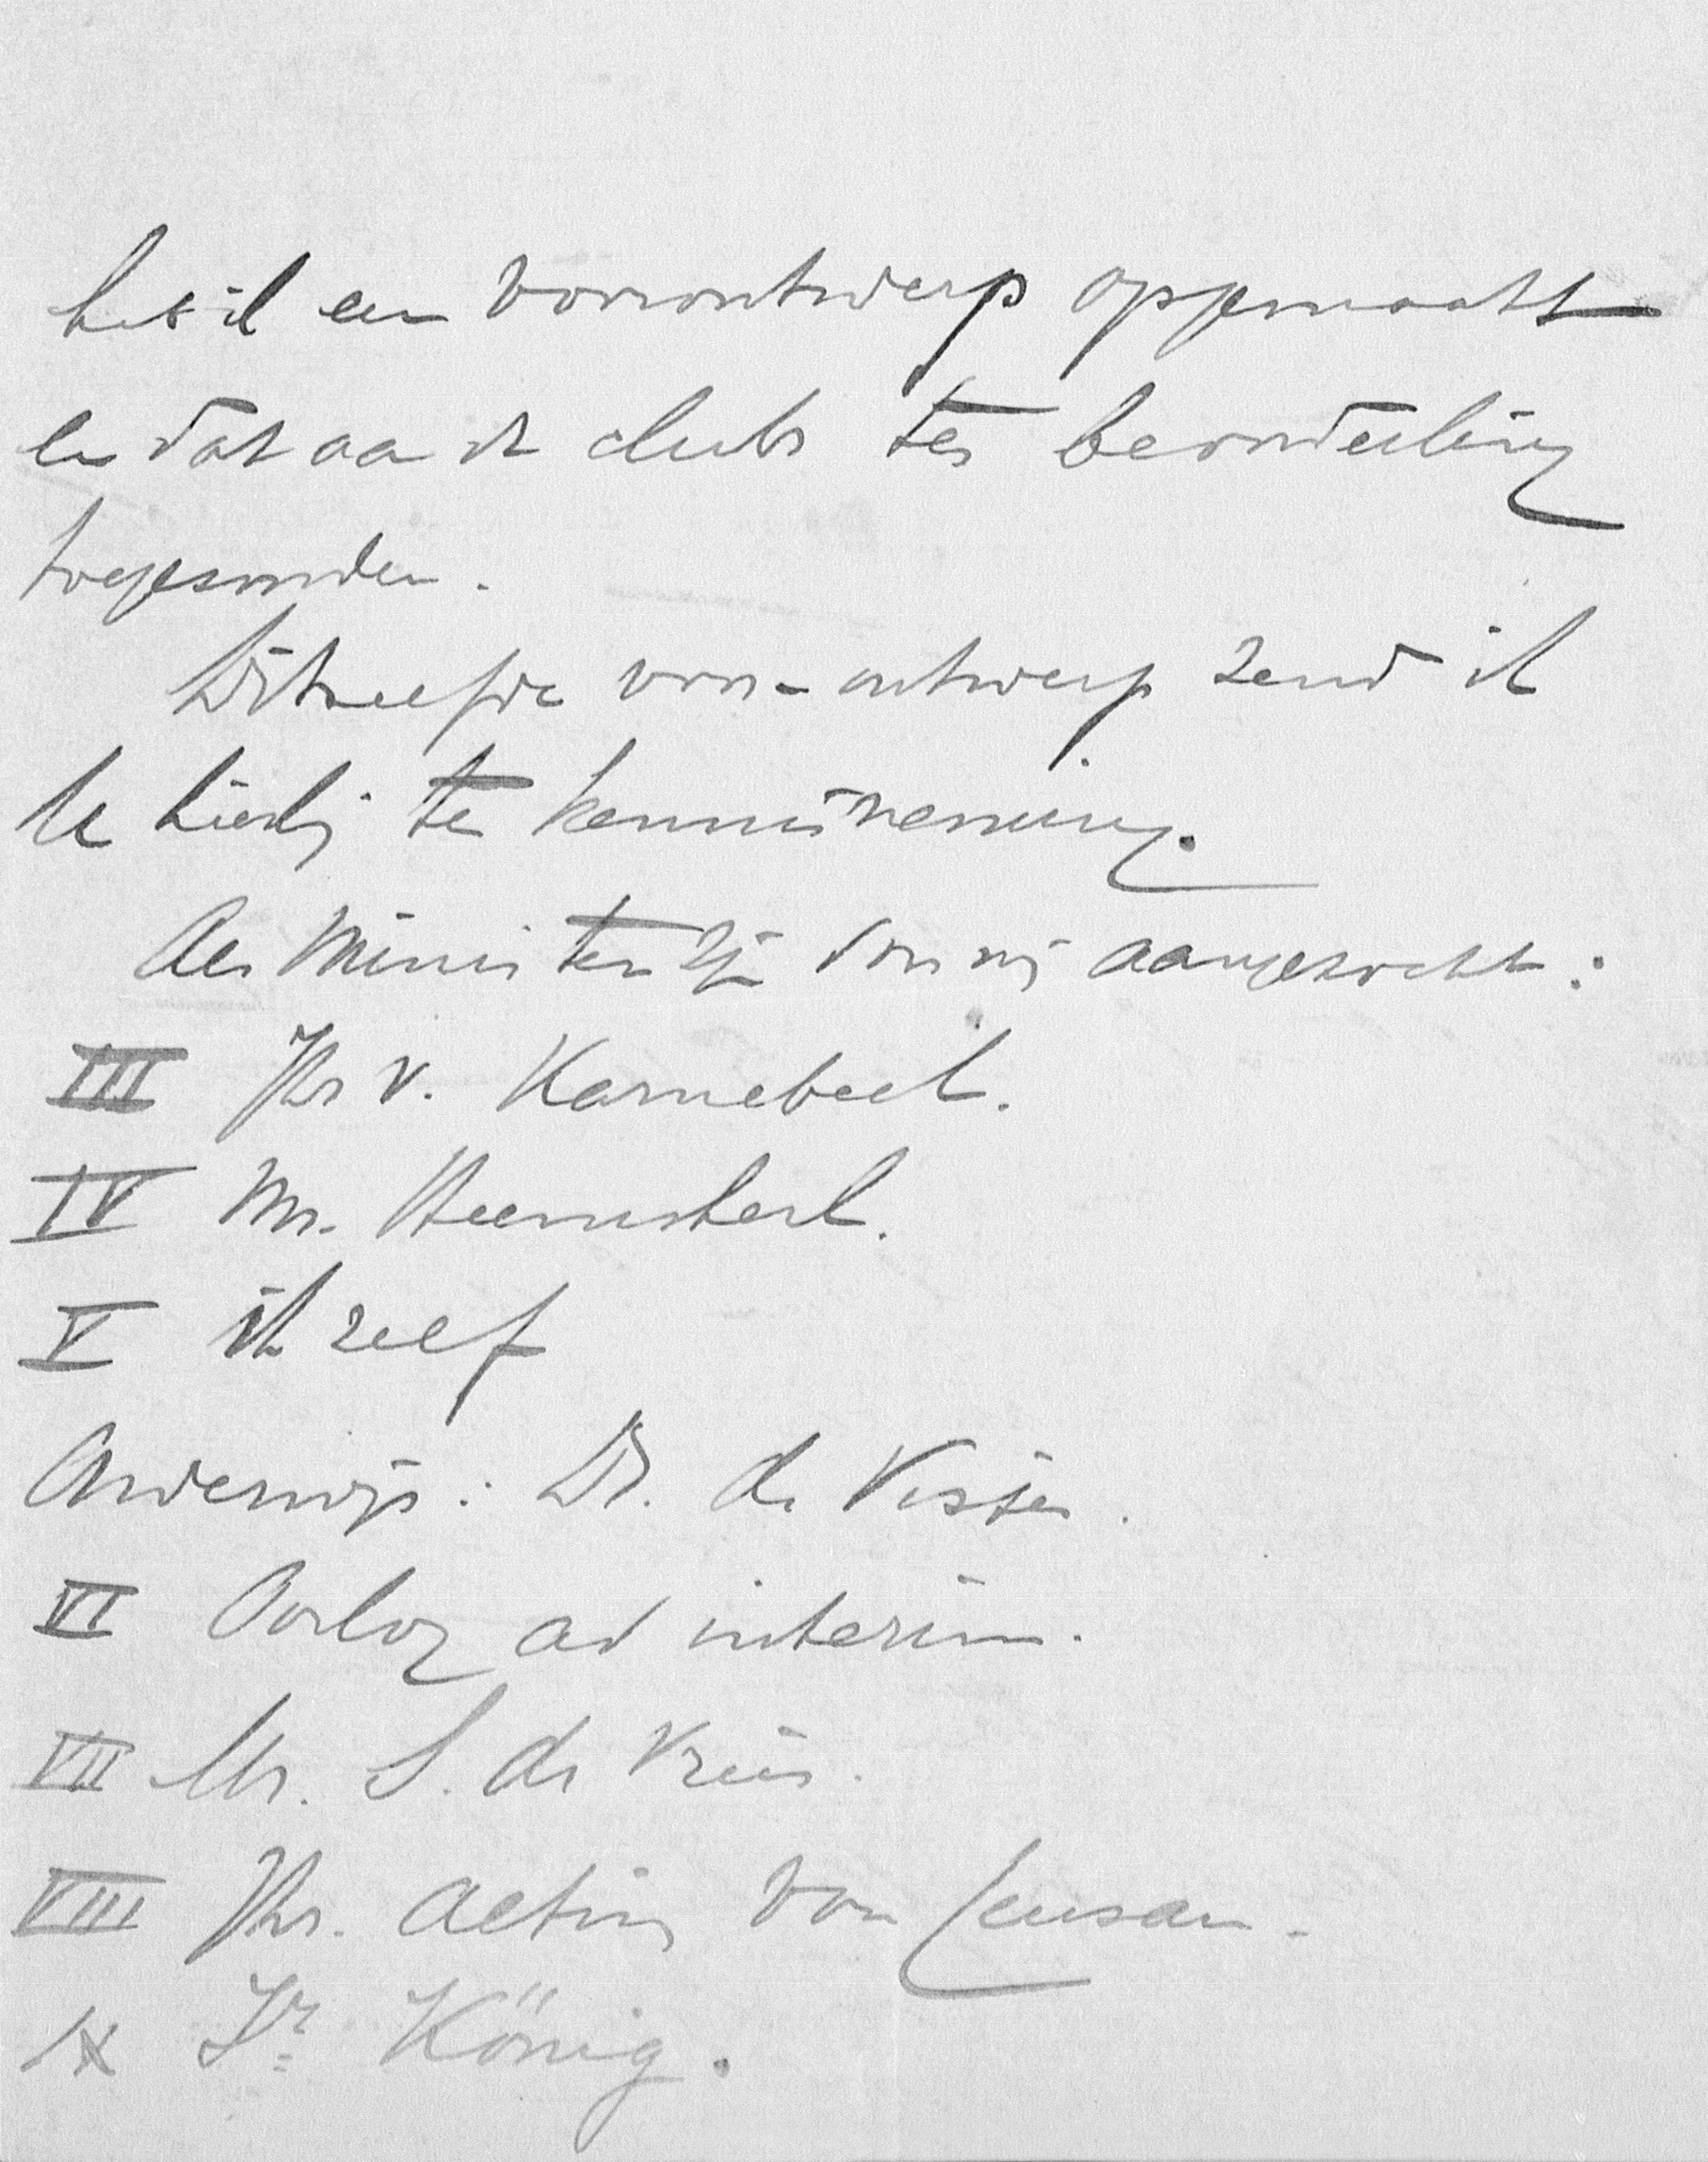 heb ik een voorontwerp opgemaakt
en dat aan de clubs ter beoordeeling
toegezonden.
Ditzelfde voor-ontwerp zend ik
U hierbij ter kennisneming.
Als Minister zijn door mij aangezocht:
III Jhr v. Karnebeek.
IV Mr. Heemskerk.
V ik zelf
Onderwijs: Dr. de Visser.
VI Oorlog ad interim.
VII Mr. S. de Vries.
VIII Jhr. Alting von Geusau.
IX Ir König.